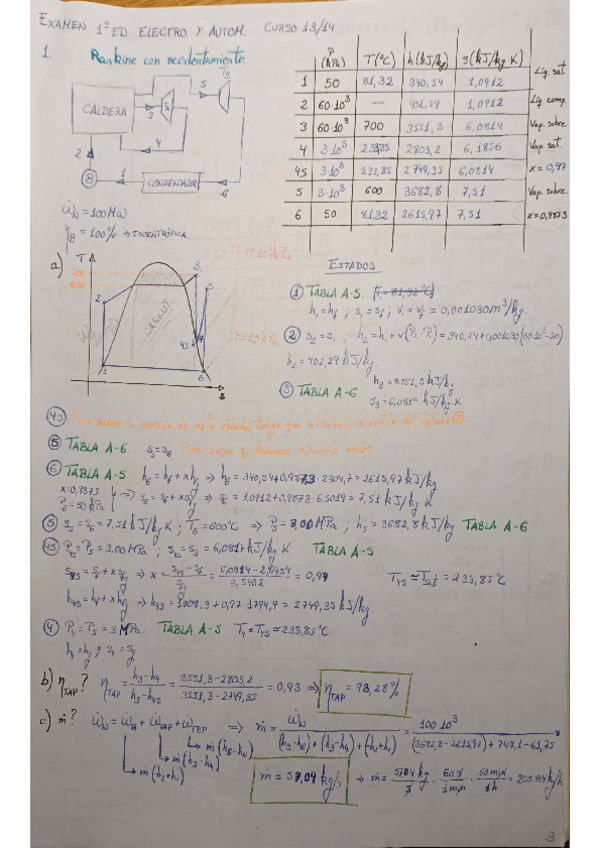 EXAMEN 1º ED ELECTRO. Y AUTOM. CURSO 13/14
1. Rankine con recalentamiento.
CALDERA
CONDENSADOR
B
TB
ẇN = 100 MW
ηB = 100% → ISOENTRÓPICA
P (kPa) T (ºC) h (kJ/kg) s (kJ/kg·K)
1 50 81,32 340,54 1,0912 Líq. sat.
2 60·10³ — 402,29 1,0912 Líq. comp.
3 60·10³ 700 3551,3 6,0814 Vap. sobre.
4 3·10³ 233,85 2803,2 6,1856 Vap. sat.
4s 3·10³ 233,85 2749,35 6,0814 x = 0,97
5 3·10³ 600 3682,8 7,51 Vap. sobre.
6 50 81,32 2615,97 7,51 x = 0,9873
a) T
700
600
s
ESTADOS
① TABLA A-5.
h₁ = hf ; s₁ = sf ; v₁ = vf = 0,001030 m³/kg.
② s₂ = s₁ ; h₂ = h₁ + v(P₂-P₁) = 340,54 + 0,001030(60·10³-50)
h₂ = 402,29 kJ/kg
③ TABLA A-6 h₃ = 3551,3 kJ/kg
s₃ = 6,0814 kJ/kg·K
④s Para saber la presión de este estado, tengo que calcularlo a partir del estado
⑤ TABLA A-6. s₅ = s₆ Para saber s₆ debemos calcularlo antes.
⑥ TABLA A-5 h₆ = hf + xhfg ⇒ h₆ = 340,54+0,9873·2304,7 = 2615,97 kJ/kg
x = 0,9873
P₆ = 50 kPa s₆ = sf + xsfg ⇒ s₆ = 1,0912+0,9873·6,5019 = 7,51 kJ/kg·K
⑤ s₅ = s₆ = 7,51 kJ/kg·K ; T₅ = 600ºC ⇒ P₅ = 3,00 MPa ; h₅ = 3682,8 kJ/kg TABLA A-6
④s P₄s = P₅ = 3,00 MPa ; s₄s = s₃ = 6,0814 kJ/kg·K TABLA A-5
s₄s = sf + x sfg ⇒ x = (s₄s - sf)/sfg = (6,0814 - 2,6454)/3,5402 = 0,97 T₄s = Tsat = 233,85ºC
h₄s = hf + x hfg ⇒ h₄s = 1008,3 + 0,97·1794,9 = 2749,35 kJ/kg
④ P₄ = P₅ = 3 MPa. TABLA A-5 T₄ = T₄s = 233,85ºC
h₄ = hg ; s₄ = sg
b) ηTAP? ηTAP = (h₃-h₄)/(h₃-h₄s) = (3551,3-2803,2)/(3551,3-2749,35) = 0,93 ⇒ ηTAP = 93,28%
c) ṁ? ẇN = ẇB + ẇTAP + ẇTBP ⇒ ṁ = ẇN/((h₅-h₆)+(h₃-h₄)+(-h₂+h₁)) = 100·10³/((3682,8-2615,97)+748,1-61,75)
ṁ(h₅-h₆)
ṁ(h₃-h₄)
ṁ(h₂+h₁)
ṁ = 57,04 kg/s ⇒ ṁ = 57,04 kg/s · 60 s/1 min · 60 min/1 h = 205344 kg/h
3